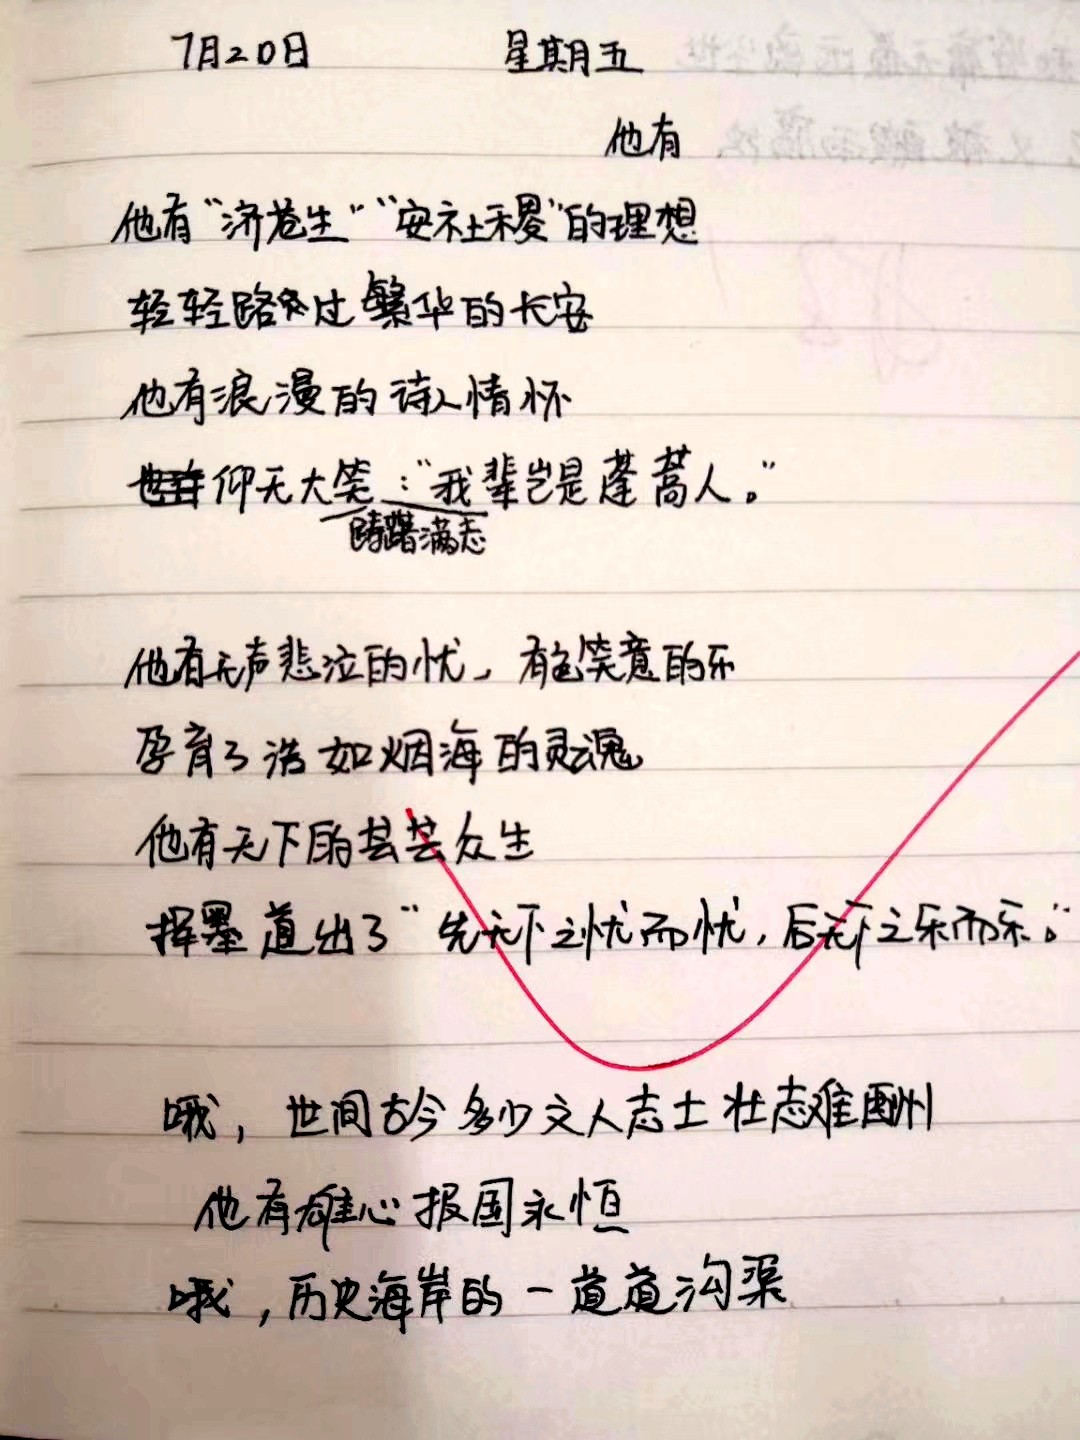 7月20日 星期五
他有
他有“济苍生”“安社稷”的理想
轻轻路过繁华的长安
他有浪漫的诗人情怀
仰天大笑:“我辈岂是蓬蒿人。”
踌躇满志
他有无声悲泣的忧,有色笑意的乐
孕育了浩如烟海的灵魂
他有天下的芸芸众生
挥墨道出了“先天下之忧而忧,后天下之乐而乐。”
哦,世间古今多少文人志士壮志难酬
他有雄心报国永恒
哦,历史海岸的一道道沟渠